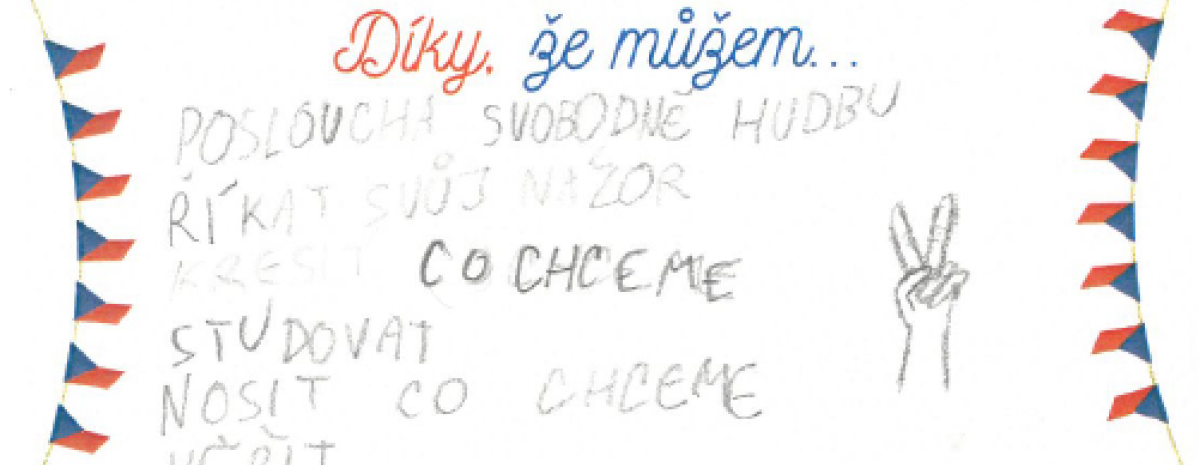 Díky, že můžem...
POSLOUCHA SVOBODNĚ HUDBU
ŘÍKAT SVŮJ NÁZOR
KRESIT CO CHCEME
STUDOVAT
NOSIT CO CHCEME
VĚŘIT